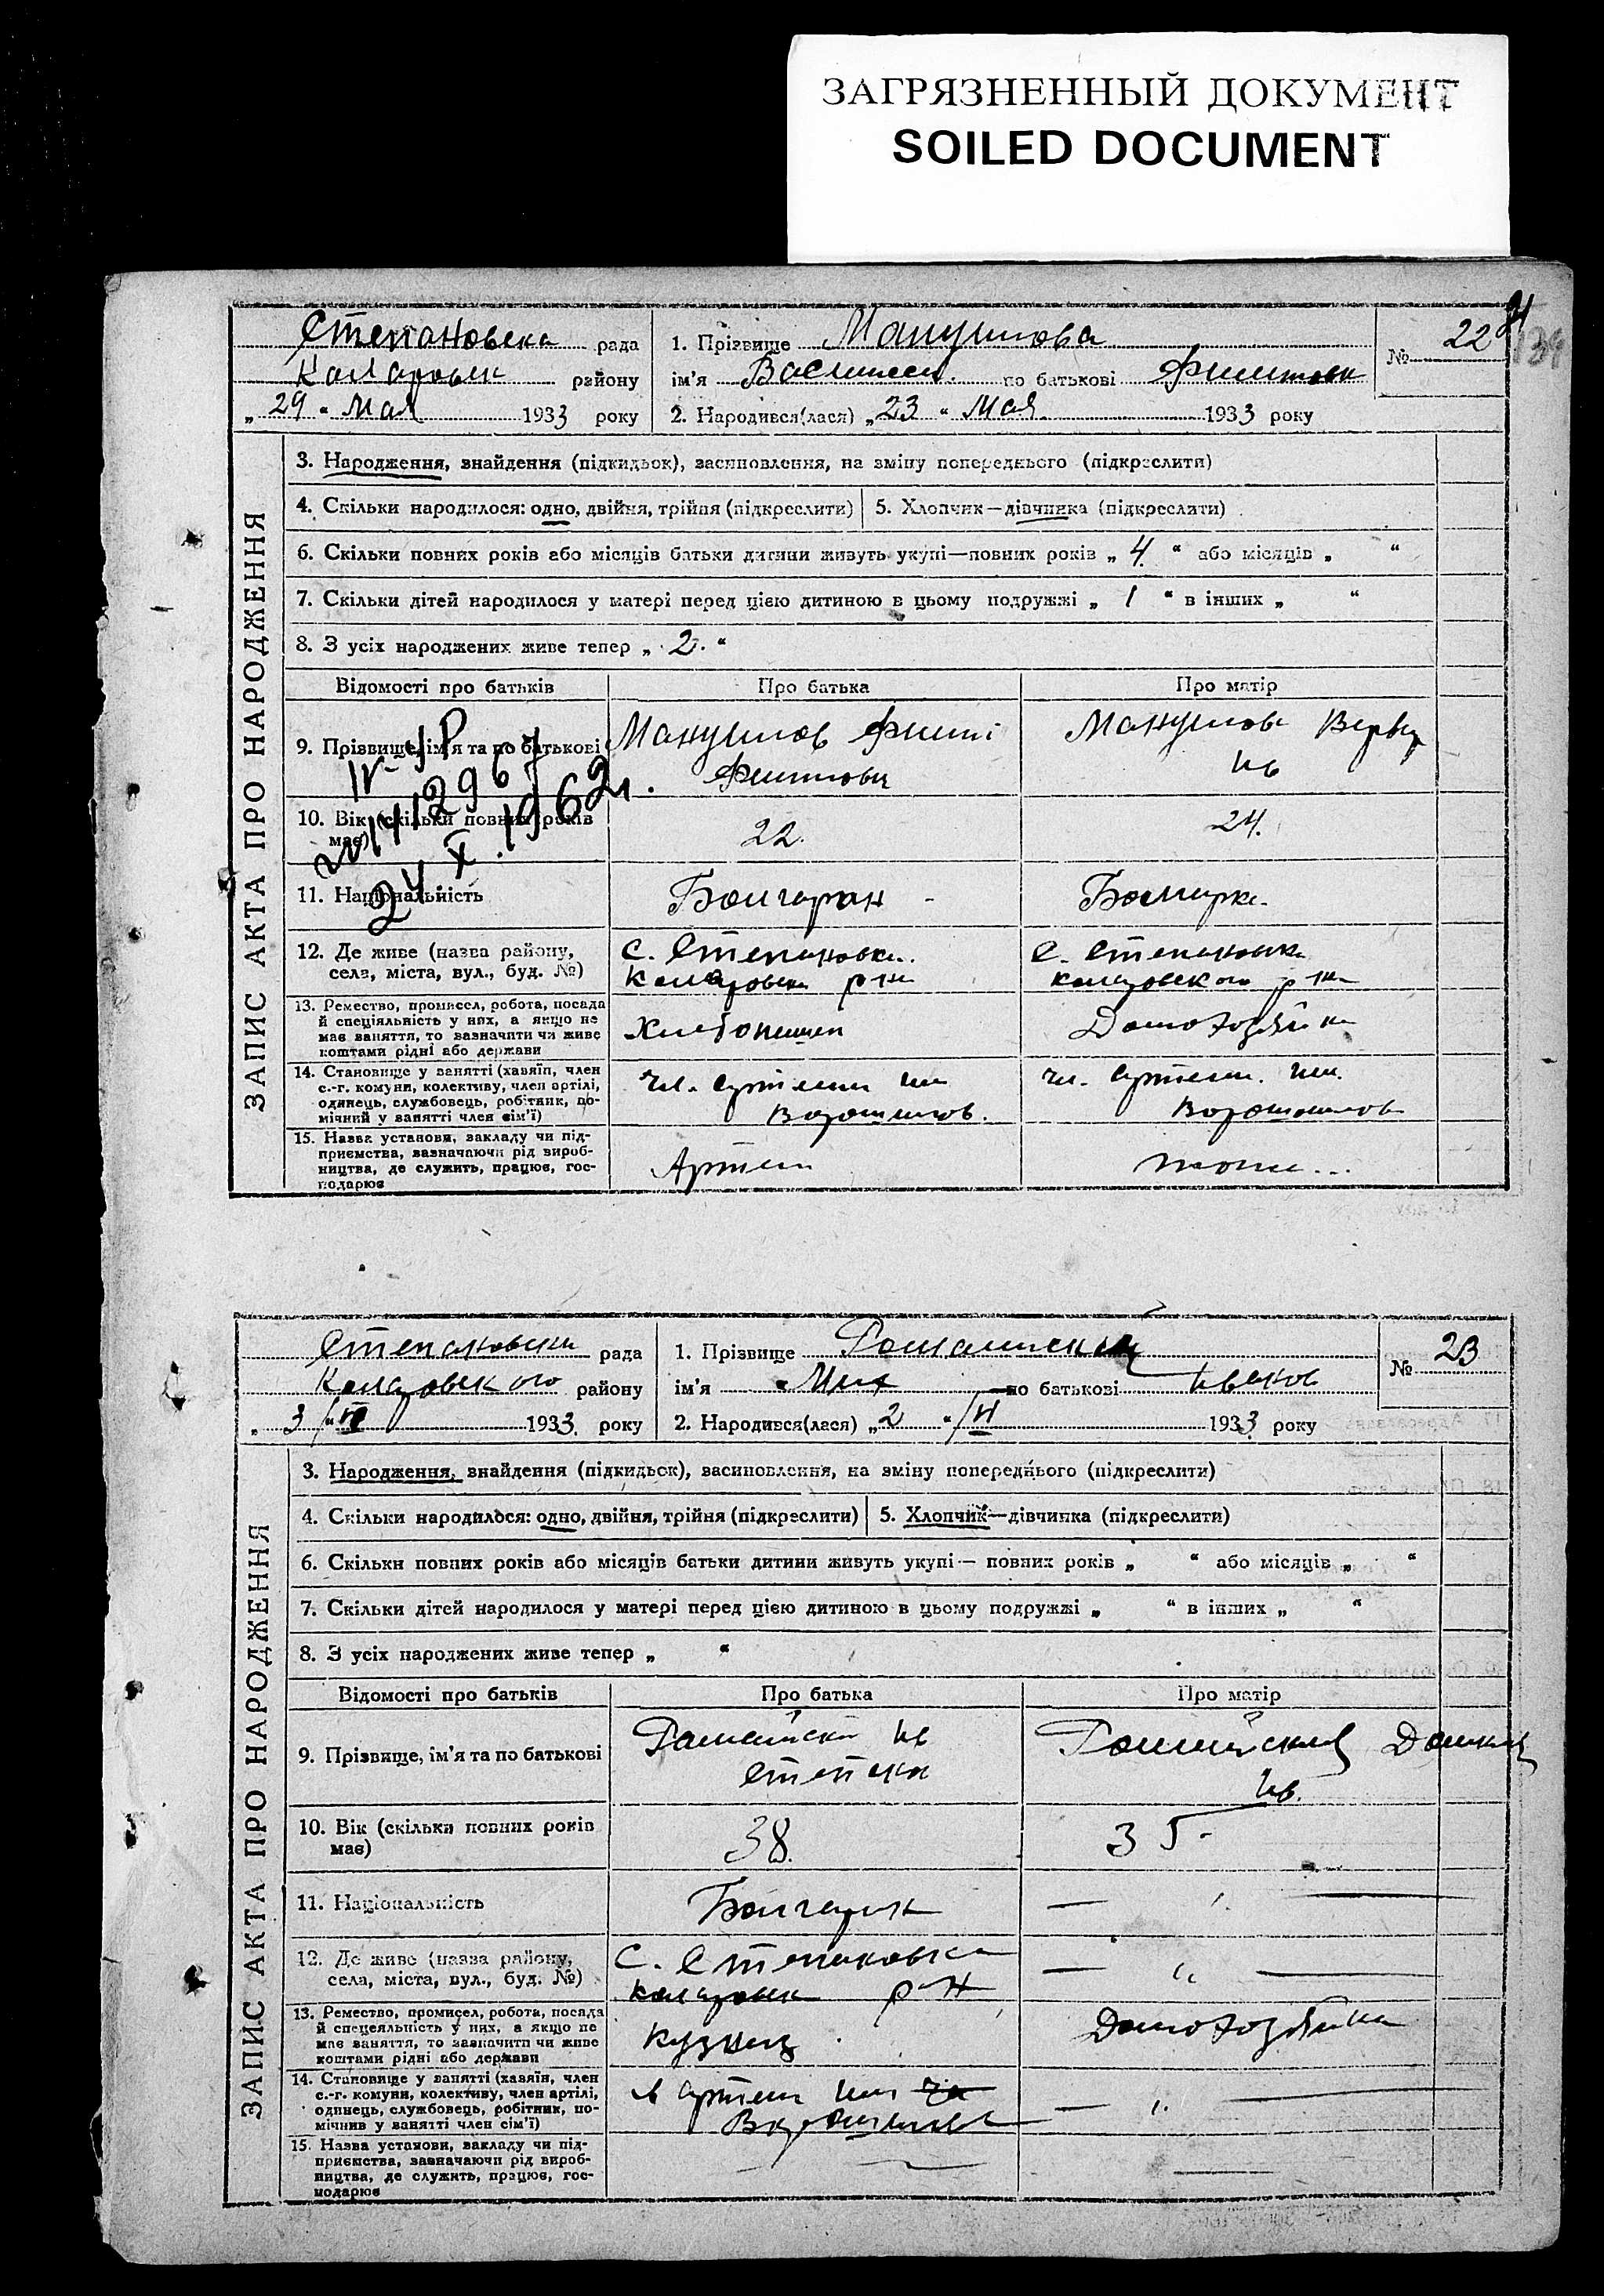 ЗАГРЯЗНЕННЫЙ ДОКУМЕНТ
SOILED DOCUMENT
Степановска рада
1. Прізвище Манушова
№ 22
району
ім'я по батькові
„ 29 “ Мая 1933 року
2. Народився(лася) „ 23 “ Мая 1933 року
ЗАПИС АКТА ПРО НАРОДЖЕННЯ
3. Народження, знайдення (підкидьок), засиновлення, на зміну попереднього (підкреслити)
4. Скільки народилося: одно, двійня, трійня (підкреслити)
5. Хлопчик—дівчинка (підкреслити)
6. Скільки повних років або місяців батьки дитини живуть укупі—повних років „ 4 “ або місяців „ “
7. Скільки дітей народилося у матері перед цією дитиною в цьому подружжі „ 1 “ в інших „ “
8. З усіх народжених живе тепер „ 2. “
Відомості про батьків
Про батька
Про матір
9. Прізвище, ім'я та по батькові
Манушов
Ив
10. Вік (скільки повних років
має)
22.
24.
24.X.1962г.
11. Національність
Болгарин
Болгарка
12. Де живе (назва району,
села, міста, вул., буд. №)
с. Степановка
р-н
с. Степановка
р-на
13. Ремество, промисел, робота, посада
й спеціяльність у них, а якщо не
має заняття, то зазначити чи живе
коштами рідні або держави
Домохозяйка
14. Становище у занятті (хазяїн, член
с.-г. комуни, колективу, член артілі,
одинець, службовець, робітник, по-
мічний у занятті член сім'ї)
чл. артели им
Ворошилов.
чл. артели им.
15. Назва установи, закладу чи під-
приємства, зазначаючи рід вироб-
ництва, де служить, працює, гос-
подарює
Артели
тоже...
рада
1. Прізвище
№ 23
району
ім'я Мих по батькові Иванов
„ 3 “ 1933 року
2. Народився(лася) „ 2 “ 1933 року
ЗАПИС АКТА ПРО НАРОДЖЕННЯ
3. Народження, знайдення (підкидьок), засиновлення, на зміну попереднього (підкреслити)
4. Скільки народилося: одно, двійня, трійня (підкреслити)
5. Хлопчик—дівчинка (підкреслити)
6. Скільки повних років або місяців батьки дитини живуть укупі — повних років „ “ або місяців „ “
7. Скільки дітей народилося у матері перед цією дитиною в цьому подружжі „ “ в інших „ “
8. З усіх народжених живе тепер „ “
Відомості про батьків
Про батька
Про матір
9. Прізвище, ім'я та по батькові
Ив
Ив.
10. Вік (скільки повних років
має)
38.
35
11. Національність
Болгарин
12. Де живе (назва району,
села, міста, вул., буд. №)
с. Степановка
р-н
13. Ремество, промисел, робота, посада
й спецеяльність у них, а якщо не
має заняття, то зазначити чи живе
коштами рідні або держави
Кузнец
Домохозяйка
14. Становище у занятті (хазяїн, член
с.-г. комуни, колективу, член артілі,
одинець, службовець, робітник, по-
мічнив у занятті член сім'ї)
в артели им
15. Назва установи, закладу чи під-
приємства, зазначаючи рід вироб-
ництва, де служить, працює, гос-
подарює